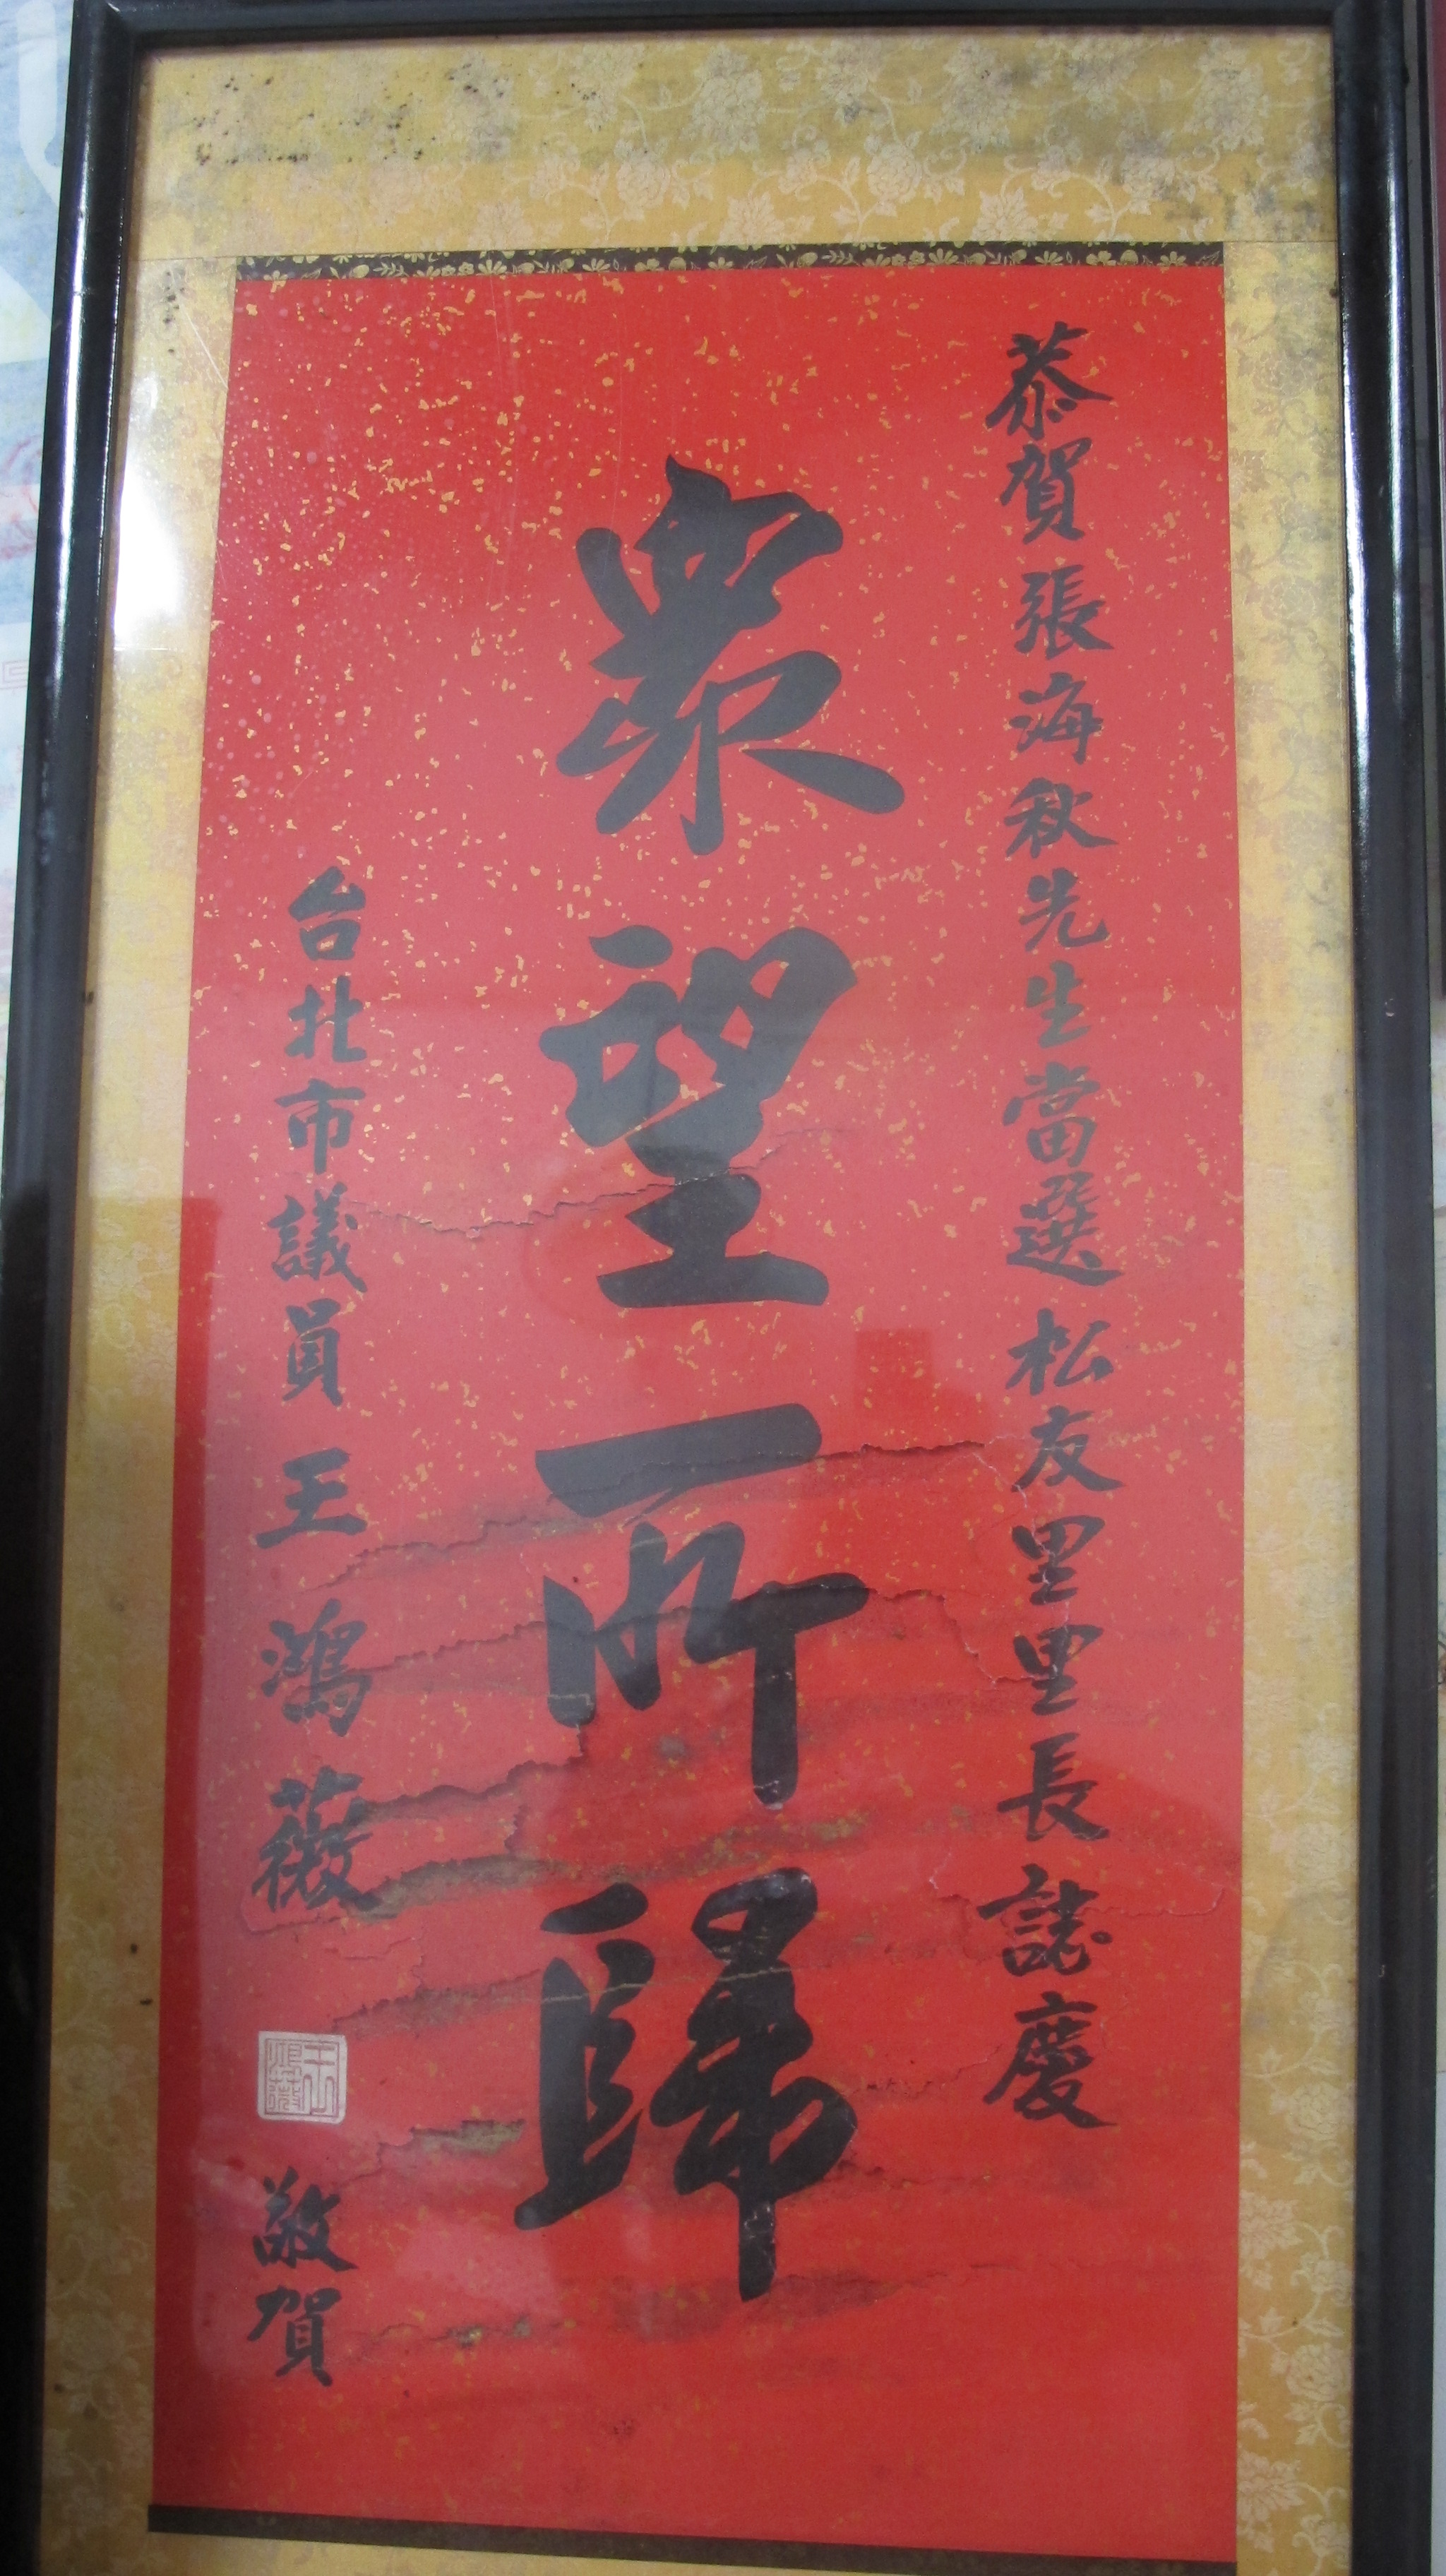 恭賀張海秋先生當選松友里里長誌慶
眾望所歸
台北市議員王鴻薇
王鴻薇
敬賀